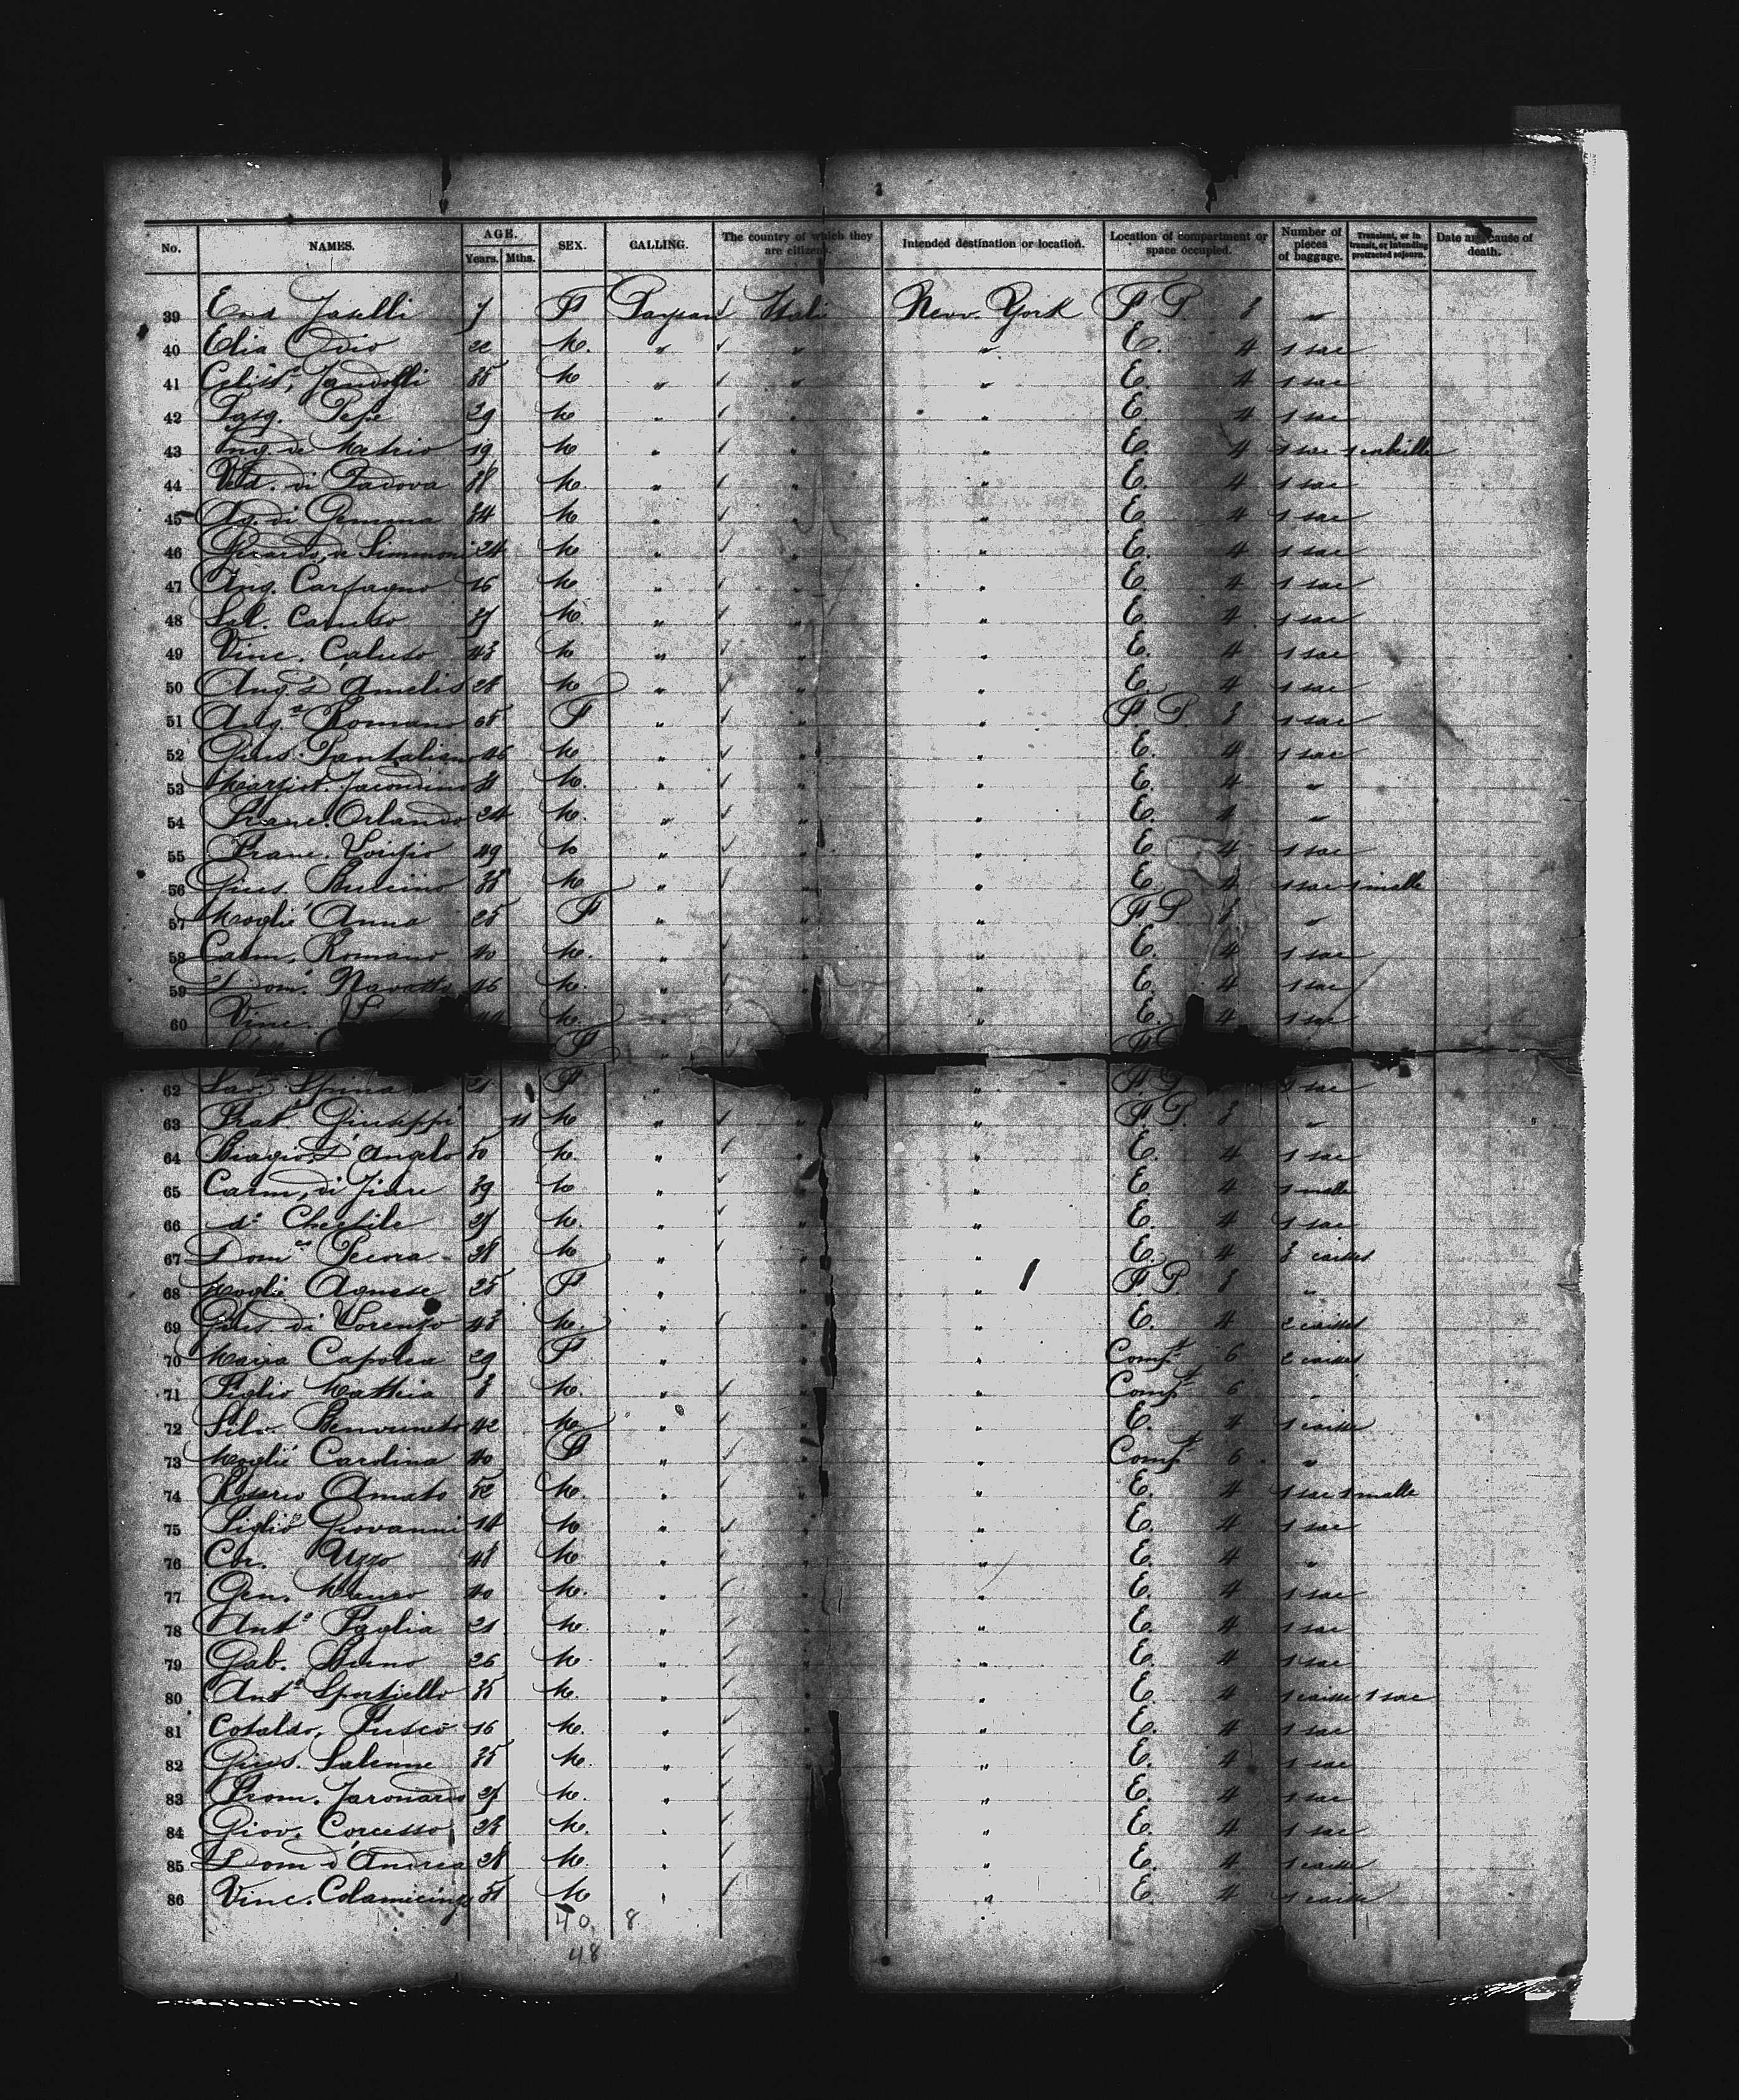 No. NAMES. AGE. Years. Mths. SEX. CALLING. The country of which they are citizens. Intended destination or location. Location of compartment or space occupied. Number of pieces of baggage. Transient, or in transit, or intending protracted sojourn. Date and cause of death.
39 7 F Paysan Itali New York F P. 3 "
40 Elia Odio 22 M. " " " E. 4 1 sac
41 35 M " " " E. 4 1 sac
42 Pasq. Pepe 29 M " " " E. 4 1 sac
43 19 M " " " E. 4 1 sac 1 corbeille
44 di Padova 38 M " " " E. 4 1 sac
45 Ag. di Gemma 34 M " " " E. 4 1 sac
46 Gerardo de Simmoni 24 M " " " E. 4 1 sac
47 Ang. Carfagno 16 M " " " E. 4 1 sac
48 Sal. Caruso M " " " E. 4 1 sac
49 Vinc. Caluso 43 M " " " E. 4 1 sac
50 Ang. d'Amelio 28 M " " " E. 4 1 sac
51 Ang.a Romano 65 F " " " F. P. 3 1 sac
52 Gius. Pantaliano 46 M " " " E. 4 1 sac
53 Jacondino M. " " " E. 4 "
54 Franc. Orlando 24 M. " " " E. 4 "
55 Franc. 49 M " " " E 4 1 sac
56 Gius. 35 M " " " E 4 1 sac 1 malle
57 Moglie Anna 25 F " " " F P. 3 "
58 Carm. Romano 40 M. " " " E. 4 1 sac
59 Dom. Navatto 46 M. " " " E. 4 1 sac
60 Vinc. M. " " " E. 4 1 sac
F "
62 Sav. Spina 21 F " " F. P. sac
63 Frat. Giuseppi 11 M " " " F. P. 3 "
64 Biagio d'Angelo 50 M. " " " E. 4 1 sac
65 Carm. di Fiore 39 M " " " E 4 1 malle
66 M. " " " E. 4 1 sac
67 Dom.co Pecora 38 M " " " E. 4 3 caisses
68 Moglie Agnese 25 F " " " F. P. 3 "
69 Gius. di Lorenzo 43 M. " " " E. 4 2 caisses
70 Maria Capolea 29 F " " " Compt 6 2 caisses
71 Figlio Matteia 8 M. " " " Compt 6 "
72 Silv. Benvenuto 42 M " " " E. 4 1 caisse
73 Moglie Carolina 40 F " " " Compt 6 "
74 Rosario Amato 52 M. " " " E. 4 1 sac 1 malle
75 Figlio Giovanni 14 M " " " E. 4 1 sac
76 Uzzo 48 M " " " E. 4 "
77 Gen. Manso 40 M. " " " E. 4 1 sac
78 Ant.o Paglia 21 M. " " " E. 4 1 sac
79 Gab. Bruno 26 M. " " " E. 4 1 sac
80 Ant.o Sportiello 35 M. " " " E. 4 1 caisse 1 sac
81 Cotaldo Fusco 16 M. " " " E. 4 1 sac
82 Gius. Salenne 35 M. " " " E. 4 1 sac
83 M. " " " E. 4 1 sac
84 Giov. Corcesso M. " " " E. 4 1 sac
85 Dom. d'Andrea 28 M. " " " E. 4 1 caisse
86 Vinc. M " " " E. 4 1 caisse
40 8
48